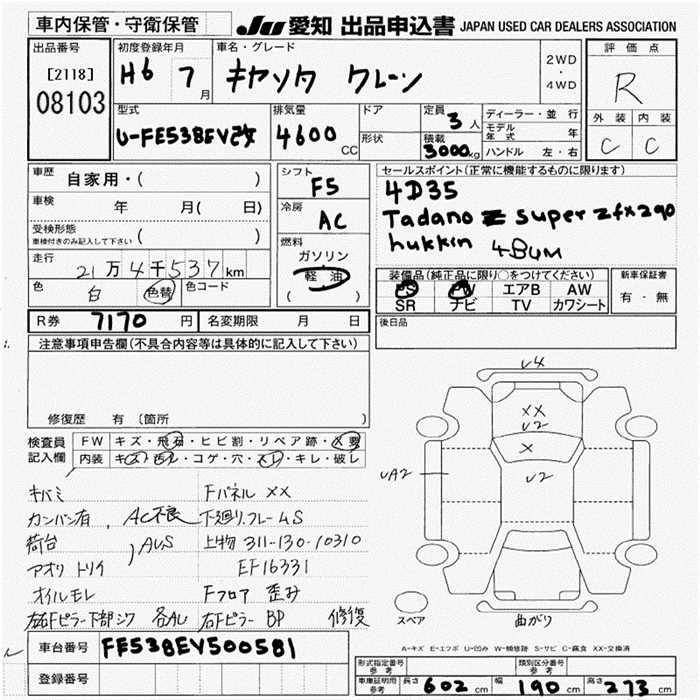 車内保管・守衛保管 JU 愛知 出品申込書 JAPAN USED CAR DEALERS ASSOCIATION
出品番号 初度登録年月 車名・グレード 2WD・4WD 評価点
[2118] H6 7月 キャンタ クレーン R
08103
型式 排気量 ドア 定員 3人 ディーラー・並行 外装 内装
U-FE538EV改 4600CC 形状 積載 3000kg モデル年式 年 C C
ハンドル 左・右
車歴 自家用・( ) シフト F5 セールスポイント(正常に機能するものに限ります)
車検 年 月( 日) 冷房 AC 4D35
受検形態 車検付きのみ記入して下さい ( ) Tadano Z super zfx290
燃料 ガソリン hukkin
走行 21万4千537km 軽油 ( ) 装備品(純正品に限り○をつけてください) 新車保証書
色 白 色替 色コード PS PW エアB AW 有・無
SR ナビ TV カワシート
R券 7170円 名変期限 月 日 後日品
注意事項申告欄(不具合内容等は具体的に記入して下さい)
修復歴 有(箇所 )
検査員記入欄 FW キズ・飛石・ヒビ割・リペア跡・X要
内装 キズ・汚レ・コゲ・穴・スレ・キレ・破レ
キバミ Fパネル XX
カンバン有 AC不良 下廻り.フレームS
荷台 AUS 上物 311-130-10310
アオリ トリイ EF16331
オイルモレ Fフロア 歪み
左右Fピラー下部シワ 各AU 右Fピラー BP 修復
U4
XX
U2
X
UA2 U2
スペア 曲がり
A-キズ E-エクボ U-凹み W-補修跡 S-サビ C-腐食 XX-交換済
車台番号 FE538EV500581
登録番号
形式指定番号 参考 類別区分番号 参考
車庫証明用 参考 長さ 602cm 幅 190cm 高さ 273cm